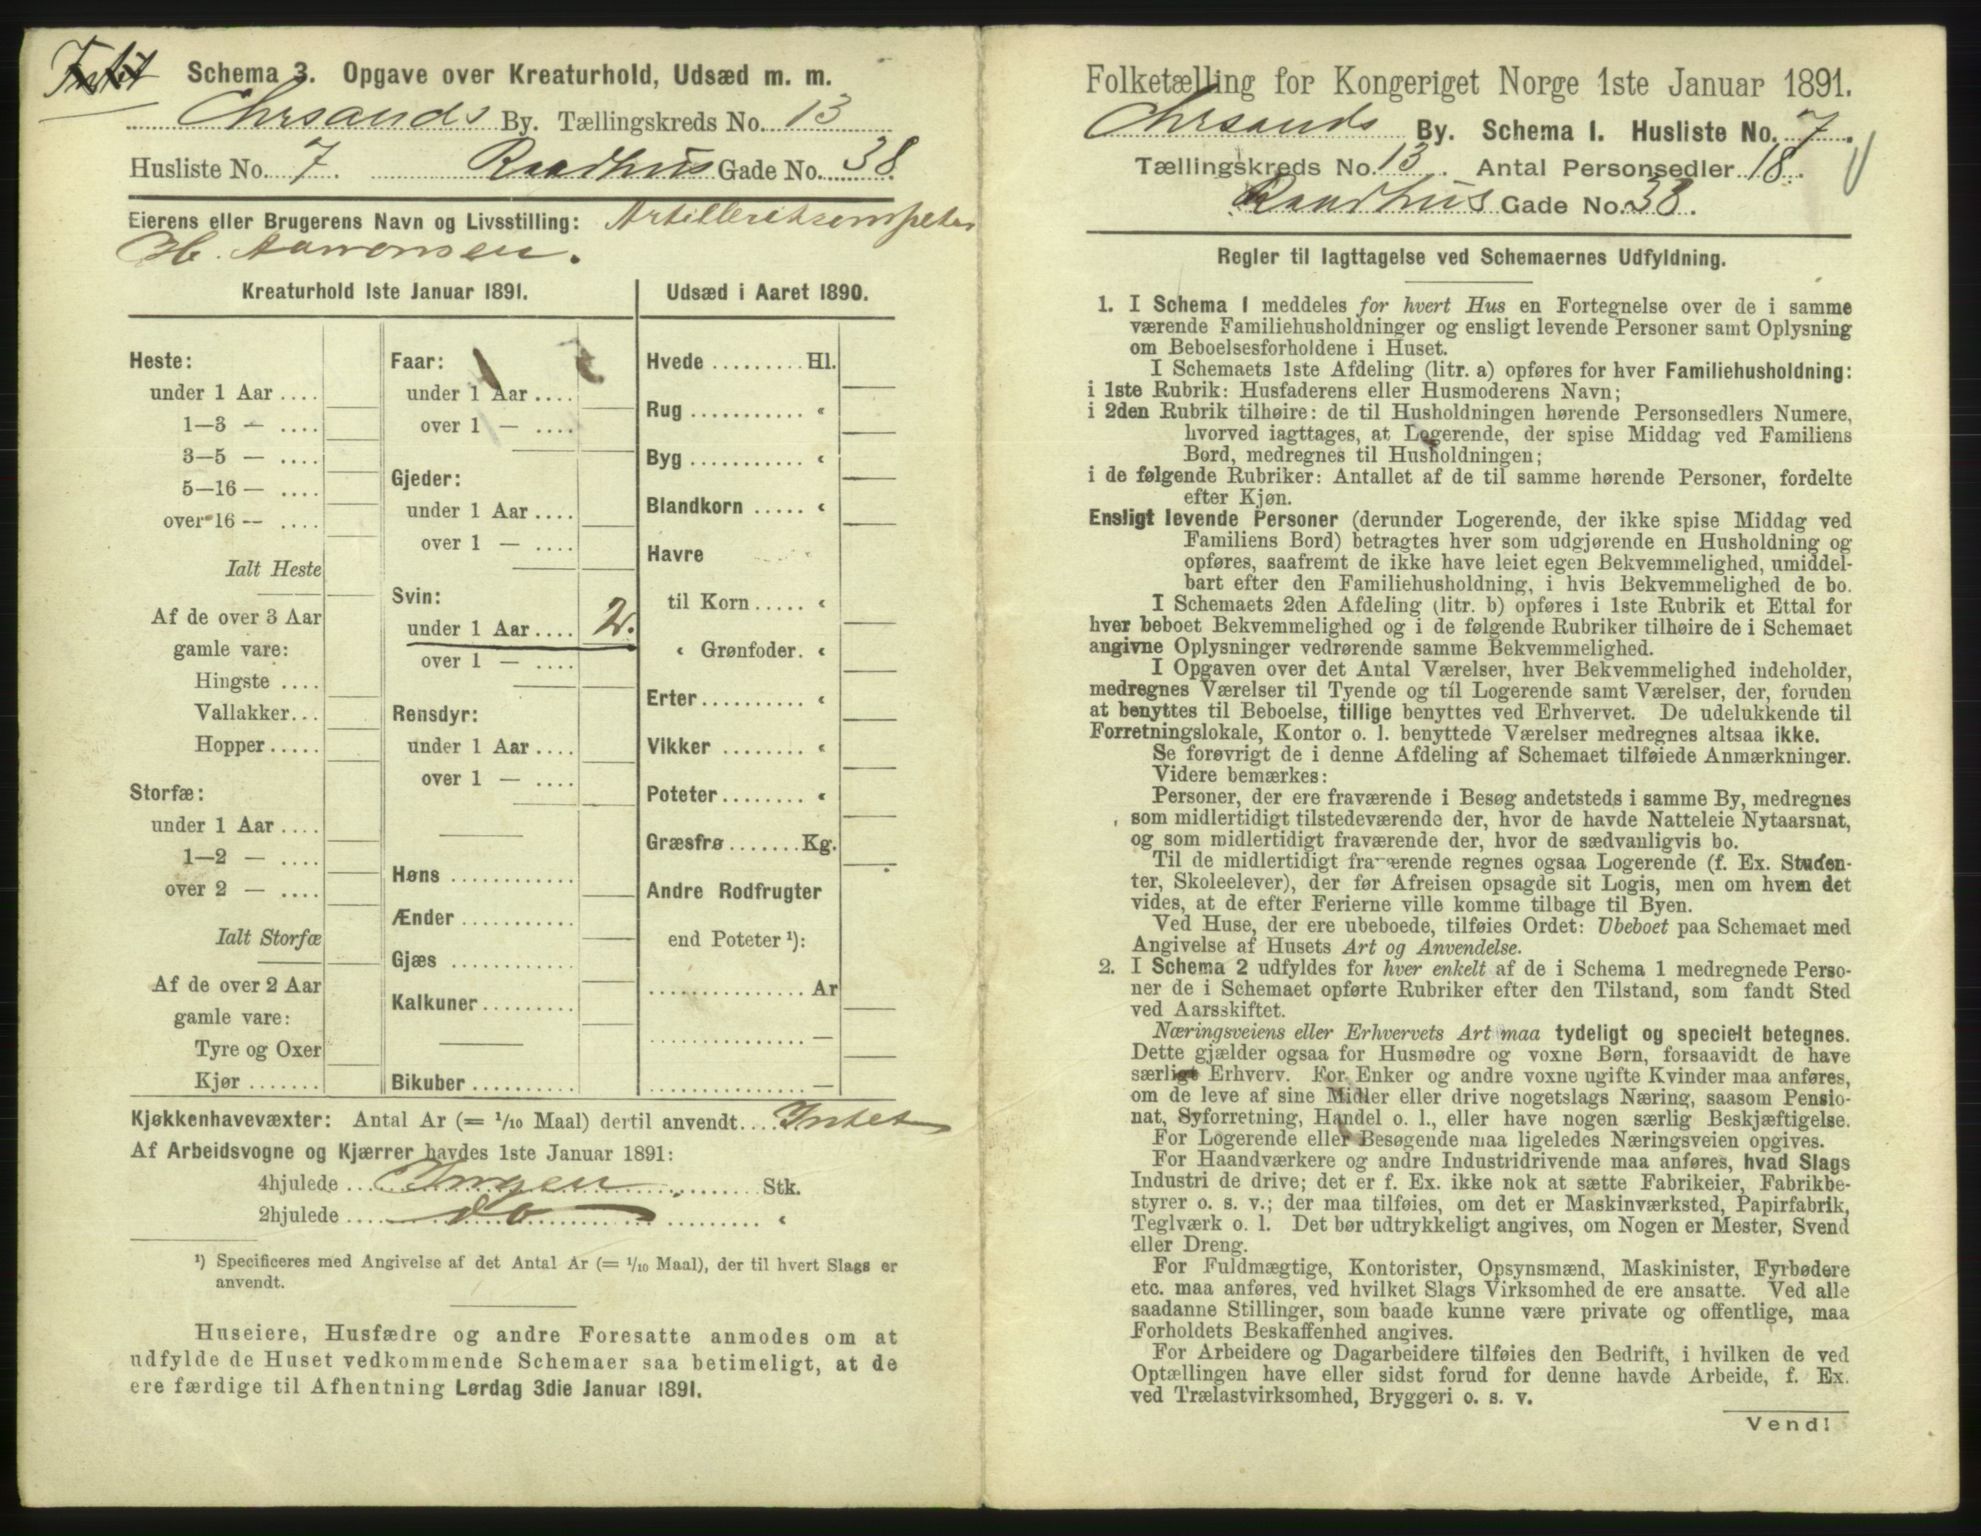 Intet
Schema 3. Opgave over Kreaturhold, Udsæd m. m.
Chrsands By. Tællingskreds No. 13
Husliste No. 7. Raadhus Gade No. 38.
Eierens eller Brugerens Navn og Livsstilling:
H. Aanonsen.
Kreaturhold 1ste Januar 1891.
Heste:
under 1 Aar ....
1—3 — ....
3—5 — ....
5—16 — ....
over 16 — ....
Ialt Heste
Af de over 3 Aar
gamle vare:
Hingste ....
Vallakker...
Hopper.....
Storfæ:
under 1 Aar ....
1—2 — ....
over 2 — ....
Ialt Storfæ
Af de over 2 Aar
gamle vare:
Tyre og Oxer
Kjør .......
Faar:
under 1 Aar ....
over 1 — ....
Gjeder:
under 1 Aar ....
over 1 — ....
Svin:
under 1 Aar .... 2.
over 1 — ....
Rensdyr:
under 1 Aar ....
over 1 — ....
Høns ............
Ænder ...........
Gjæs ............
Kalkuner.........
Bikuber ..........
Udsæd i Aaret 1890.
Hvede ......... Hl.
Rug ........... «
Byg ........... «
Blandkorn ..... «
Havre
til Korn..... «
« Grønfoder. «
Erter .......... «
Vikker ......... «
Poteter ........ «
Græsfrø ....... Kg.
Andre Rodfrugter
end Poteter ¹):
............... Ar
............... —
............... —
Kjøkkenhavevæxter: Antal Ar (= 1/10 Maal) dertil anvendt.... Intet
Af Arbeidsvogne og Kjærrer havdes 1ste Januar 1891:
4hjulede .... Ingen ........ Stk.
2hjulede .... do ........ «
¹) Specificeres med Angivelse af det Antal Ar (= 1/10 Maal), der til hvert Slags er
anvendt.
Huseiere, Husfædre og andre Foresatte anmodes om at
udfylde de Huset vedkommende Schemaer saa betimeligt, at de
ere færdige til Afhentning Lørdag 3die Januar 1891.
Folketælling for Kongeriget Norge 1ste Januar 1891.
Chrsands By. Schema 1. Husliste No. 7.
Tællingskreds No. 13. Antal Personsedler 18.
Raadhus Gade No. 38.
Regler til Iagttagelse ved Schemaernes Udfyldning.
1. I Schema 1 meddeles for hvert Hus en Fortegnelse over de i samme
værende Familiehusholdninger og ensligt levende Personer samt Oplysning
om Beboelsesforholdene i Huset.
I Schemaets 1ste Afdeling (litr. a) opføres for hver Familiehusholdning:
i 1ste Rubrik: Husfaderens eller Husmoderens Navn;
i 2den Rubrik tilhøire: de til Husholdningen hørende Personsedlers Numere,
hvorved iagttages, at Logerende, der spise Middag ved Familiens
Bord, medregnes til Husholdningen;
i de følgende Rubriker: Antallet af de til samme hørende Personer, fordelte
efter Kjøn.
Ensligt levende Personer (derunder Logerende, der ikke spise Middag ved
Familiens Bord) betragtes hver som udgjørende en Husholdning og
opføres, saafremt de ikke have leiet egen Bekvemmelighed, umiddel-
bart efter den Familiehusholdning, i hvis Bekvemmelighed de bo.
I Schemaets 2den Afdeling (litr. b) opføres i 1ste Rubrik et Ettal for
hver beboet Bekvemmelighed og i de følgende Rubriker tilhøire de i Schemaet
angivne Oplysninger vedrørende samme Bekvemmelighed.
I Opgaven over det Antal Værelser, hver Bekvemmelighed indeholder,
medregnes Værelser til Tyende og til Logerende samt Værelser, der, foruden
at benyttes til Beboelse, tillige benyttes ved Erhvervet. De udelukkende til
Forretningslokale, Kontor o. l. benyttede Værelser medregnes altsaa ikke.
Se forøvrigt de i denne Afdeling af Schemaet tilføiede Anmærkninger.
Videre bemærkes:
Personer, der ere fraværende i Besøg andetsteds i samme By, medregnes
som midlertidigt tilstedeværende der, hvor de havde Natteleie Nytaarsnat,
og som midlertidigt fraværende der, hvor de sædvanligvis bo.
Til de midlertidigt fraværende regnes ogsaa Logerende (f. Ex. Studen-
ter, Skoleelever), der før Afreisen opsagde sit Logis, men om hvem det
vides, at de efter Ferierne ville komme tilbage til Byen.
Ved Huse, der ere ubeboede, tilføies Ordet: Ubeboet paa Schemaet med
Angivelse af Husets Art og Anvendelse.
2. I Schema 2 udfyldes for hver enkelt af de i Schema 1 medregnede Perso-
ner de i Schemaet opførte Rubriker efter den Tilstand, som fandt Sted
ved Aarsskiftet.
Næringsveiens eller Erhvervets Art maa tydeligt og specielt betegnes.
Dette gjælder ogsaa for Husmødre og voxne Børn, forsaavidt de have
særligt Erhverv. For Enker og andre voxne ugifte Kvinder maa anføres,
om de leve af sine Midler eller drive nogetslags Næring, saasom Pensio-
nat, Syforretning, Handel o. l., eller have nogen særlig Beskjæftigelse.
For Logerende eller Besøgende maa ligeledes Næringsveien opgives.
For Haandværkere og andre Industridrivende maa anføres, hvad Slags
Industri de drive; det er f. Ex. ikke nok at sætte Fabrikeier, Fabrikbe-
styrer o. s. v.; der maa tilføies, om det er Maskinværksted, Papirfabrik,
Teglværk o. l. Det bør udtrykkeligt angives, om Nogen er Mester, Svend
eller Dreng.
For Fuldmægtige, Kontorister, Opsynsmænd, Maskinister, Fyrbødere
etc. maa anføres, ved hvilket Slags Virksomhed de ere ansatte. Ved alle
saadanne Stillinger, som baade kunne være private og offentlige, maa
Forholdets Beskaffenhed angives.
For Arbeidere og Dagarbeidere tilføies den Bedrift, i hvilken de ved
Optællingen have eller sidst forud for denne havde Arbeide, f. Ex.
ved Trælastvirksomhed, Bryggeri o. s. v.
Vend!